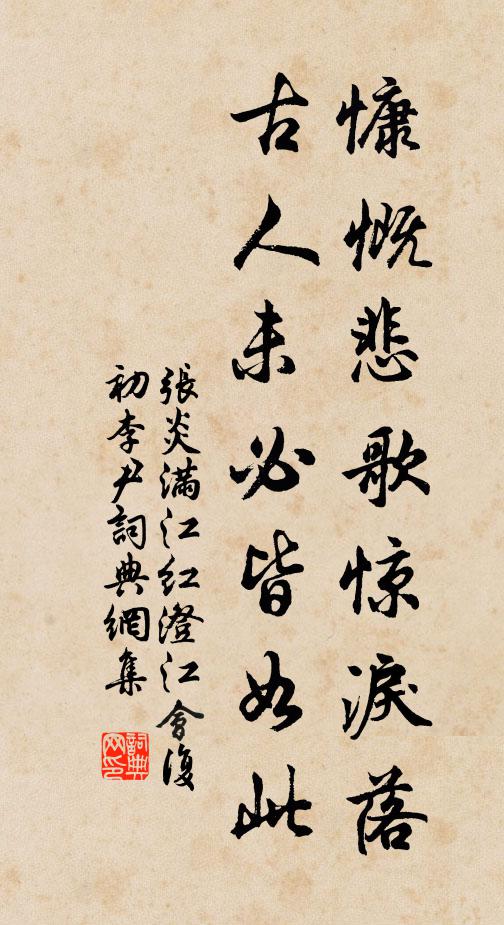 慷慨悲歌惊淚落
古人未必皆如此
張炎滿江红澄江會復
初李尹詞典網集
詞典網印